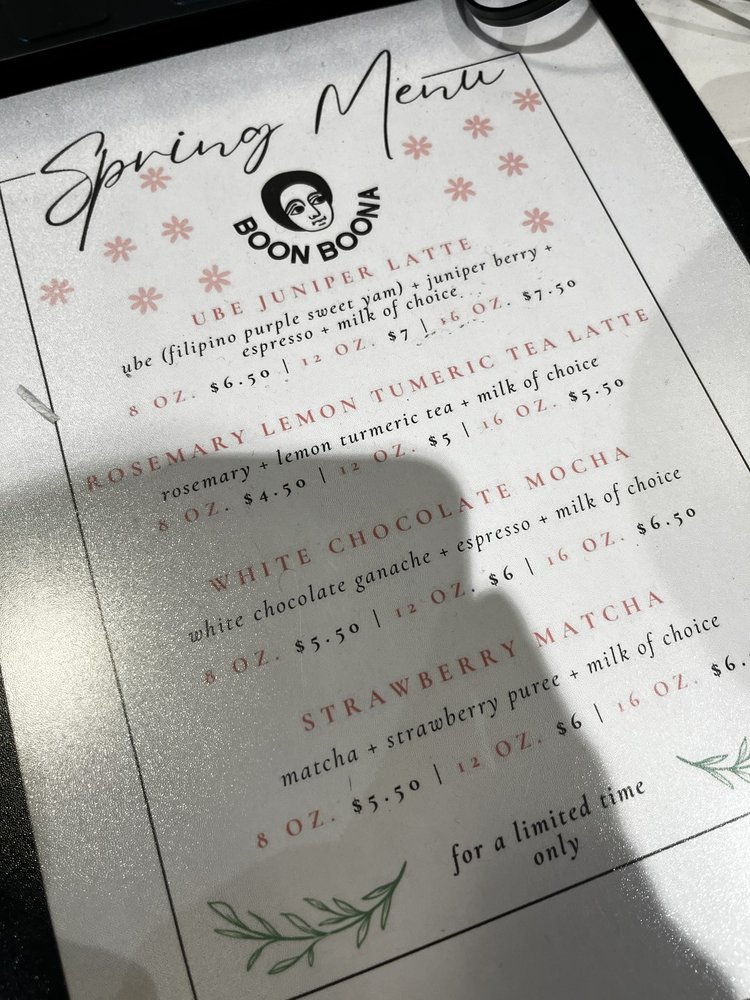 Spring Menu
BOON BOONA
UBE JUNIPER LATTE
ube (filipino purple sweet yam) + juniper berry +
espresso + milk of choice
8 OZ. $6.50 | 12 OZ. $7 | 16 OZ. $7.50
ROSEMARY LEMON TUMERIC TEA LATTE
rosemary + lemon turmeric tea + milk of choice
8 OZ. $4.50 | 12 OZ. $5 | 16 OZ. $5.50
WHITE CHOCOLATE MOCHA
white chocolate ganache + espresso + milk of choice
8 OZ. $5.50 | 12 OZ. $6 | 16 OZ. $6.50
STRAWBERRY MATCHA
matcha + strawberry puree + milk of choice
8 OZ. $5.50 | 12 OZ. $6 | 16 OZ. $6.
for a limited time
only